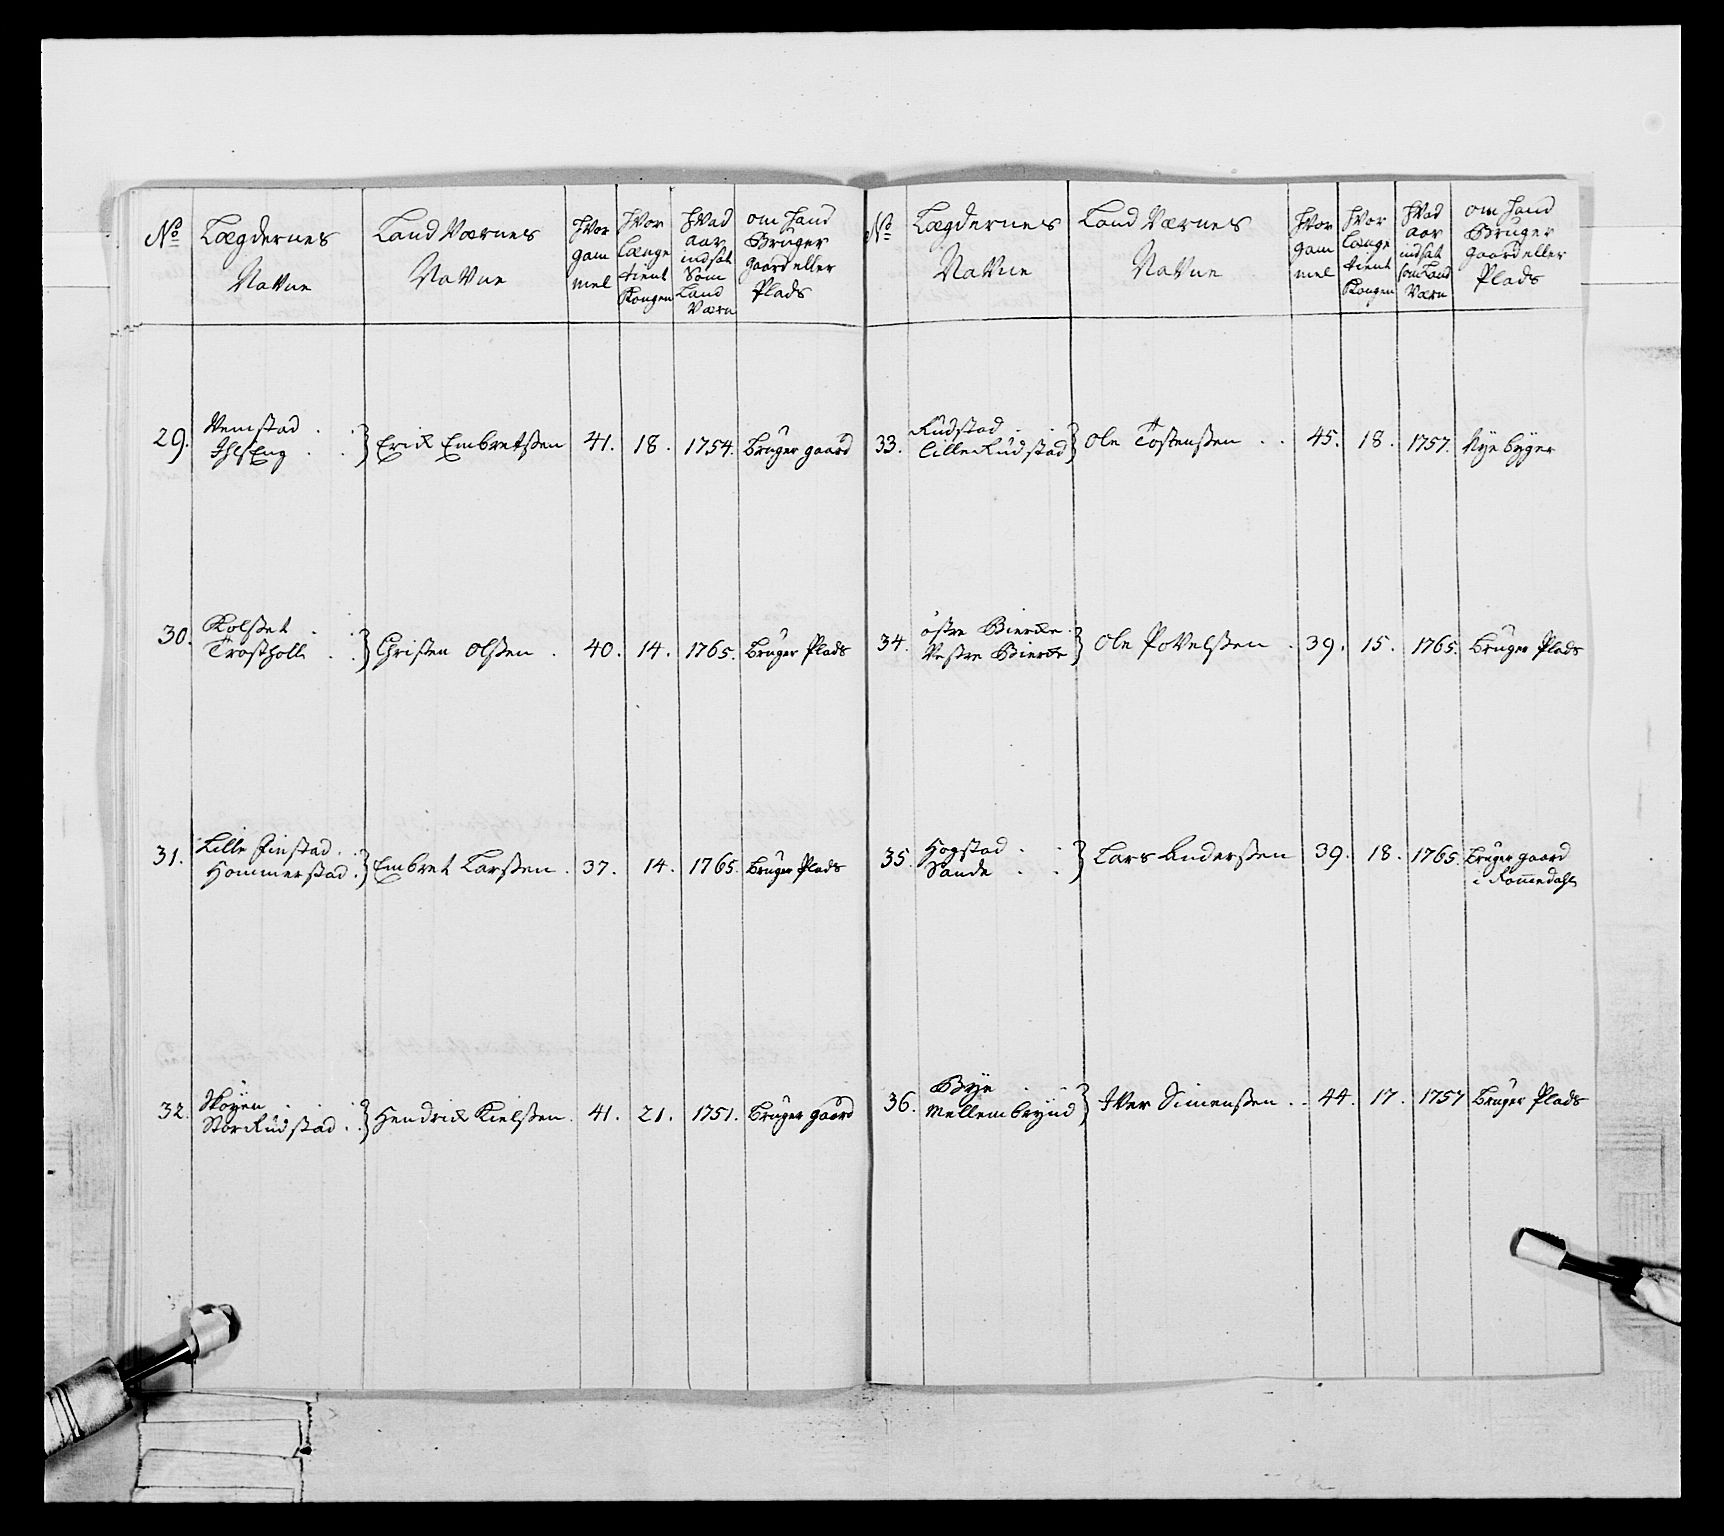 No
Lægdernes
Navne
Land Værnes
Navne
Hvor
gam
mel
Hvor
Længe
tient
Kongen
Hvad
aar
indsat
Som
Land
Værn
om Hand
Bruger
gaard eller
Plads
29.
Vemstad . .
. .
} Erick Embretsen 41. 18. 1754. Bruger gaard
30.
Kolset . .
Trostholl . .
} Christen Olsen . 40. 14. 1765. Bruger Plads
31.
Lille Finstad . .
Hommerstad .
} Embret Larsen . 37. 14. 1765. Bruger Plads
32.
Skøyen . .
Stor Rudstad . .
} Hendrick Kielsen . 41. 21. 1751. Bruger gaard
No
Lægdernes
Navne
Land Værnes
Navne
Hvor
gam
mel
Hvor
Længe
tient
Kongen
Hvad
aar
indsat
Som Land
Værn
om Hand
Bruger
gaard eller
Plads
33.
Rudstad . .
Lille Rudstad
} Ole Tostensen . . 45. 18. 1757. Nye byger
34.
østre Biercke .
Vestre Biercke
} Ole Povelsen . 39. 15. 1765. Bruger Plads
35.
Hogstad . .
Sande . .
} Lars Andersen 39. 18. 1765. Bruger gaard
i Rommedahl
36.
Bÿe . .
Mellembyund
} Iver Simensen . . 44. 17. 1757 Bruger Plads